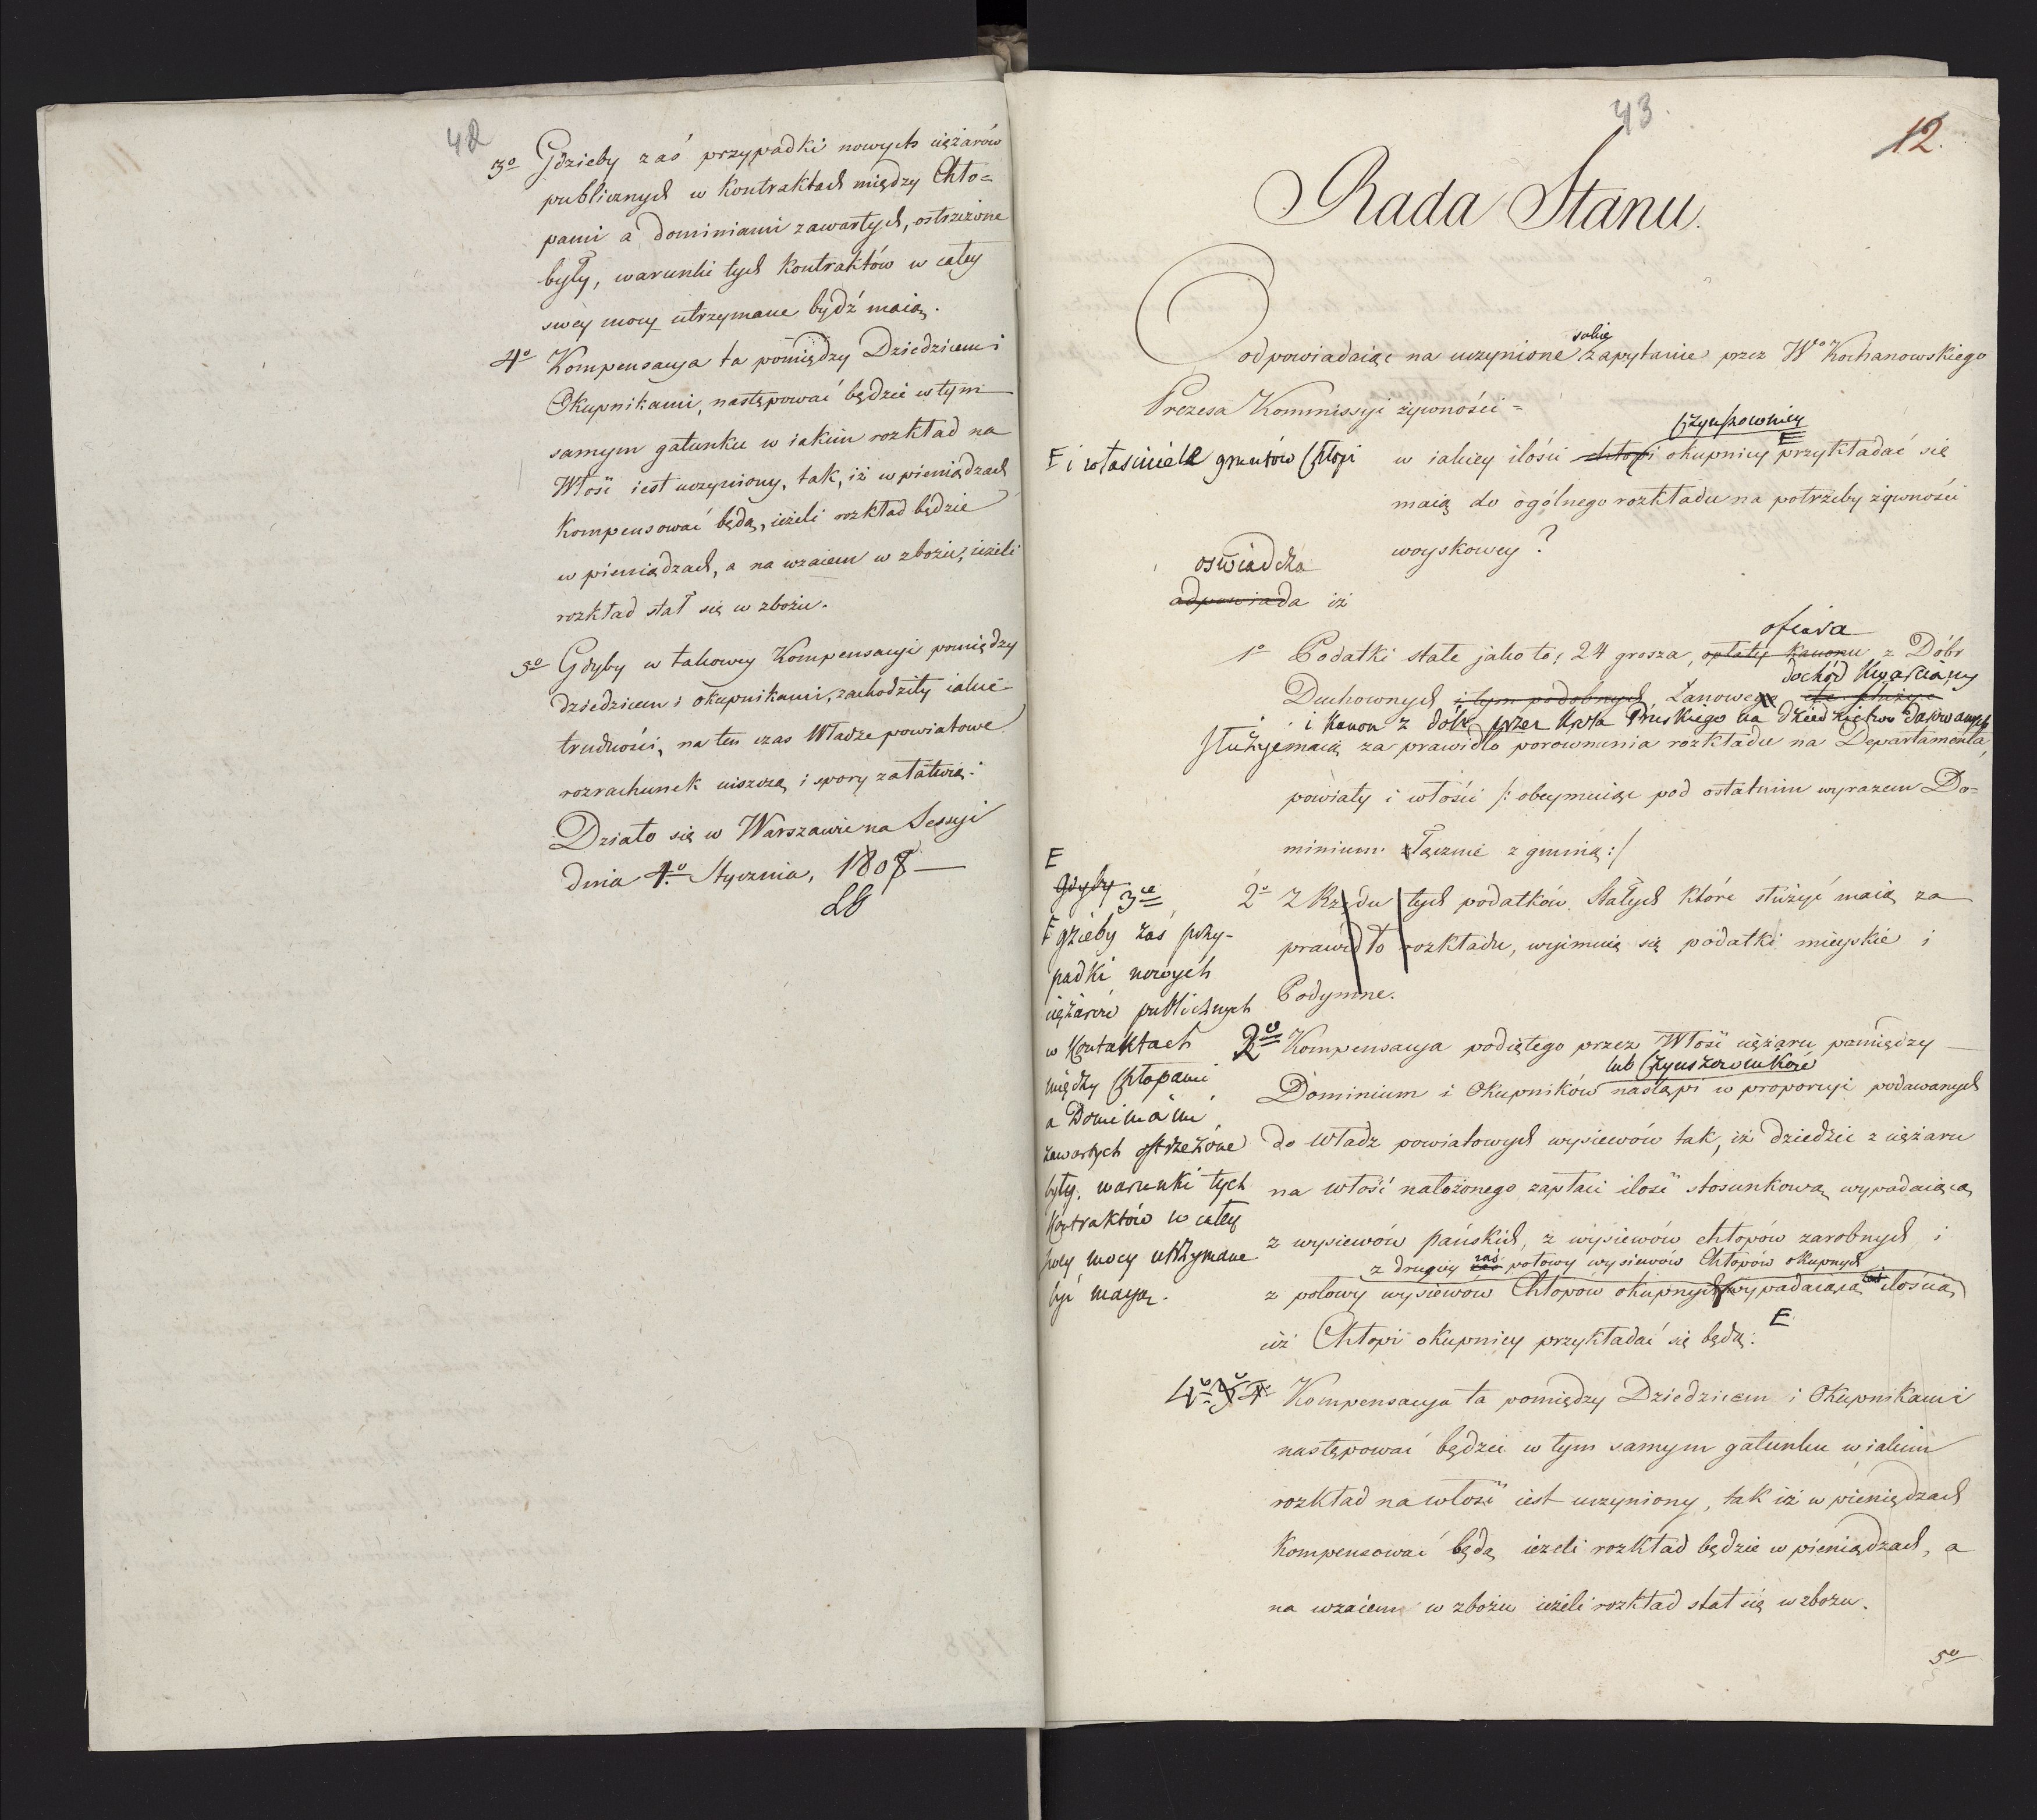 42
3o Gdzieby zaś przypadki nowych ciężarów
publicznych w Kontraktach między Chło=
pami a dominiami zawartych, ostrzeżone
były, warunki tych Kontraktów w całey
swey mocy utrzymane bydź maią.
4o Kompensacya ta pomiędzy Dziedzicem i
Okupnikami, następować będzie w tym
samym gatunku w iakim rozkład na
Włość iest uczyniony, tak, iż w pieniądzach
Kompensować będą, ieżeli rozkład będzie
w pieniądzach, a na wzaiem w zbożu, ieżeli
rozkład stał się w zbożu.
5o Gdyby w takowey Kompensacyi pomiędzy
dziedzicem i okupnikami, zachodziły iakie
trudności, na ten czas Władze powiatowe
rozrachunek uiszczą i spory załatwią.
Działo się w Warszawie na Sessyi
dnia 4.o Stycznia, 1808
43.
12.
Rada Stanu.
sobie
Odpowiadaiąc na uczynione zapytanie przez Wgo Kochanowskiego
Prezesa Kommissyi żywności =
Czynszownicy
F i właściciele gruntów Chłopi
w iakiey ilości chłopi okupnicy F przykładać się
maią do ogólnego rozkładu na potrzeby żywności
woyskowey?
oświadcza
odpowiada iż
ofiara
1o Podatki stałe jako to, 24 grosza, opłaty kanonu z Dóbr
dochód Kwarciany
Duchownych i tym podobnych Łanowego etc. służyć
i Kanon z dóbr przez Króla Pruskiego na dziedzictwo darowanych
służyć maią za prawidło porównania rozkładu na Departamenta,
powiaty i włości /: obeymuiąc pod ostatnim wyrazem Do=
minium łącznie z gminą :/
2o Z Rzędu tych podatków Stałych które służyć maią za
prawidło rozkładu, wyimuią się podatki mieyskie i
Podymne.
F
Gdyby 3o
F gdzieby zaś przy-
padki nowych
ciężarów publicznych
w Kontaktach
między Chłopami
a Dominiami
zawartych ostrzeżone
były, warunki tych
Kontraktów w całey
swey mocy utrzymane
być mayą.
2o Kompensacya podiętego przez Włość ciężaru pomiędzy
lub Czynszowników
Dominium i Okupników nastąpi w proporcyi podawanych
do Władz powiatowych wysiewów tak, iż dziedzic z ciężaru
na włość nałożonego zapłaci ilość stosunkową wypadaiącą
z wysiewów pańskich, z wysiewów chłopów zarobnych i
z drugiey zaś połowy wysiewów Chłopów okupnych
z połowy wysiewów Chłopów okupnych wypadaiącą ilością
iż Chłopi okupnicy przykładać się będą. F
4o Kompensacya ta pomiędzy Dziedzicem i Okupnikami
następować będzie w tym samym gatunku w iakim
rozkład na włość iest uczyniony, tak iż w pieniędzach
Kompensować będą ieżeli rozkład będzie w pieniądzach, a
na wzaiem w zbożu ieżeli rozkład stał się w zbożu.
5o